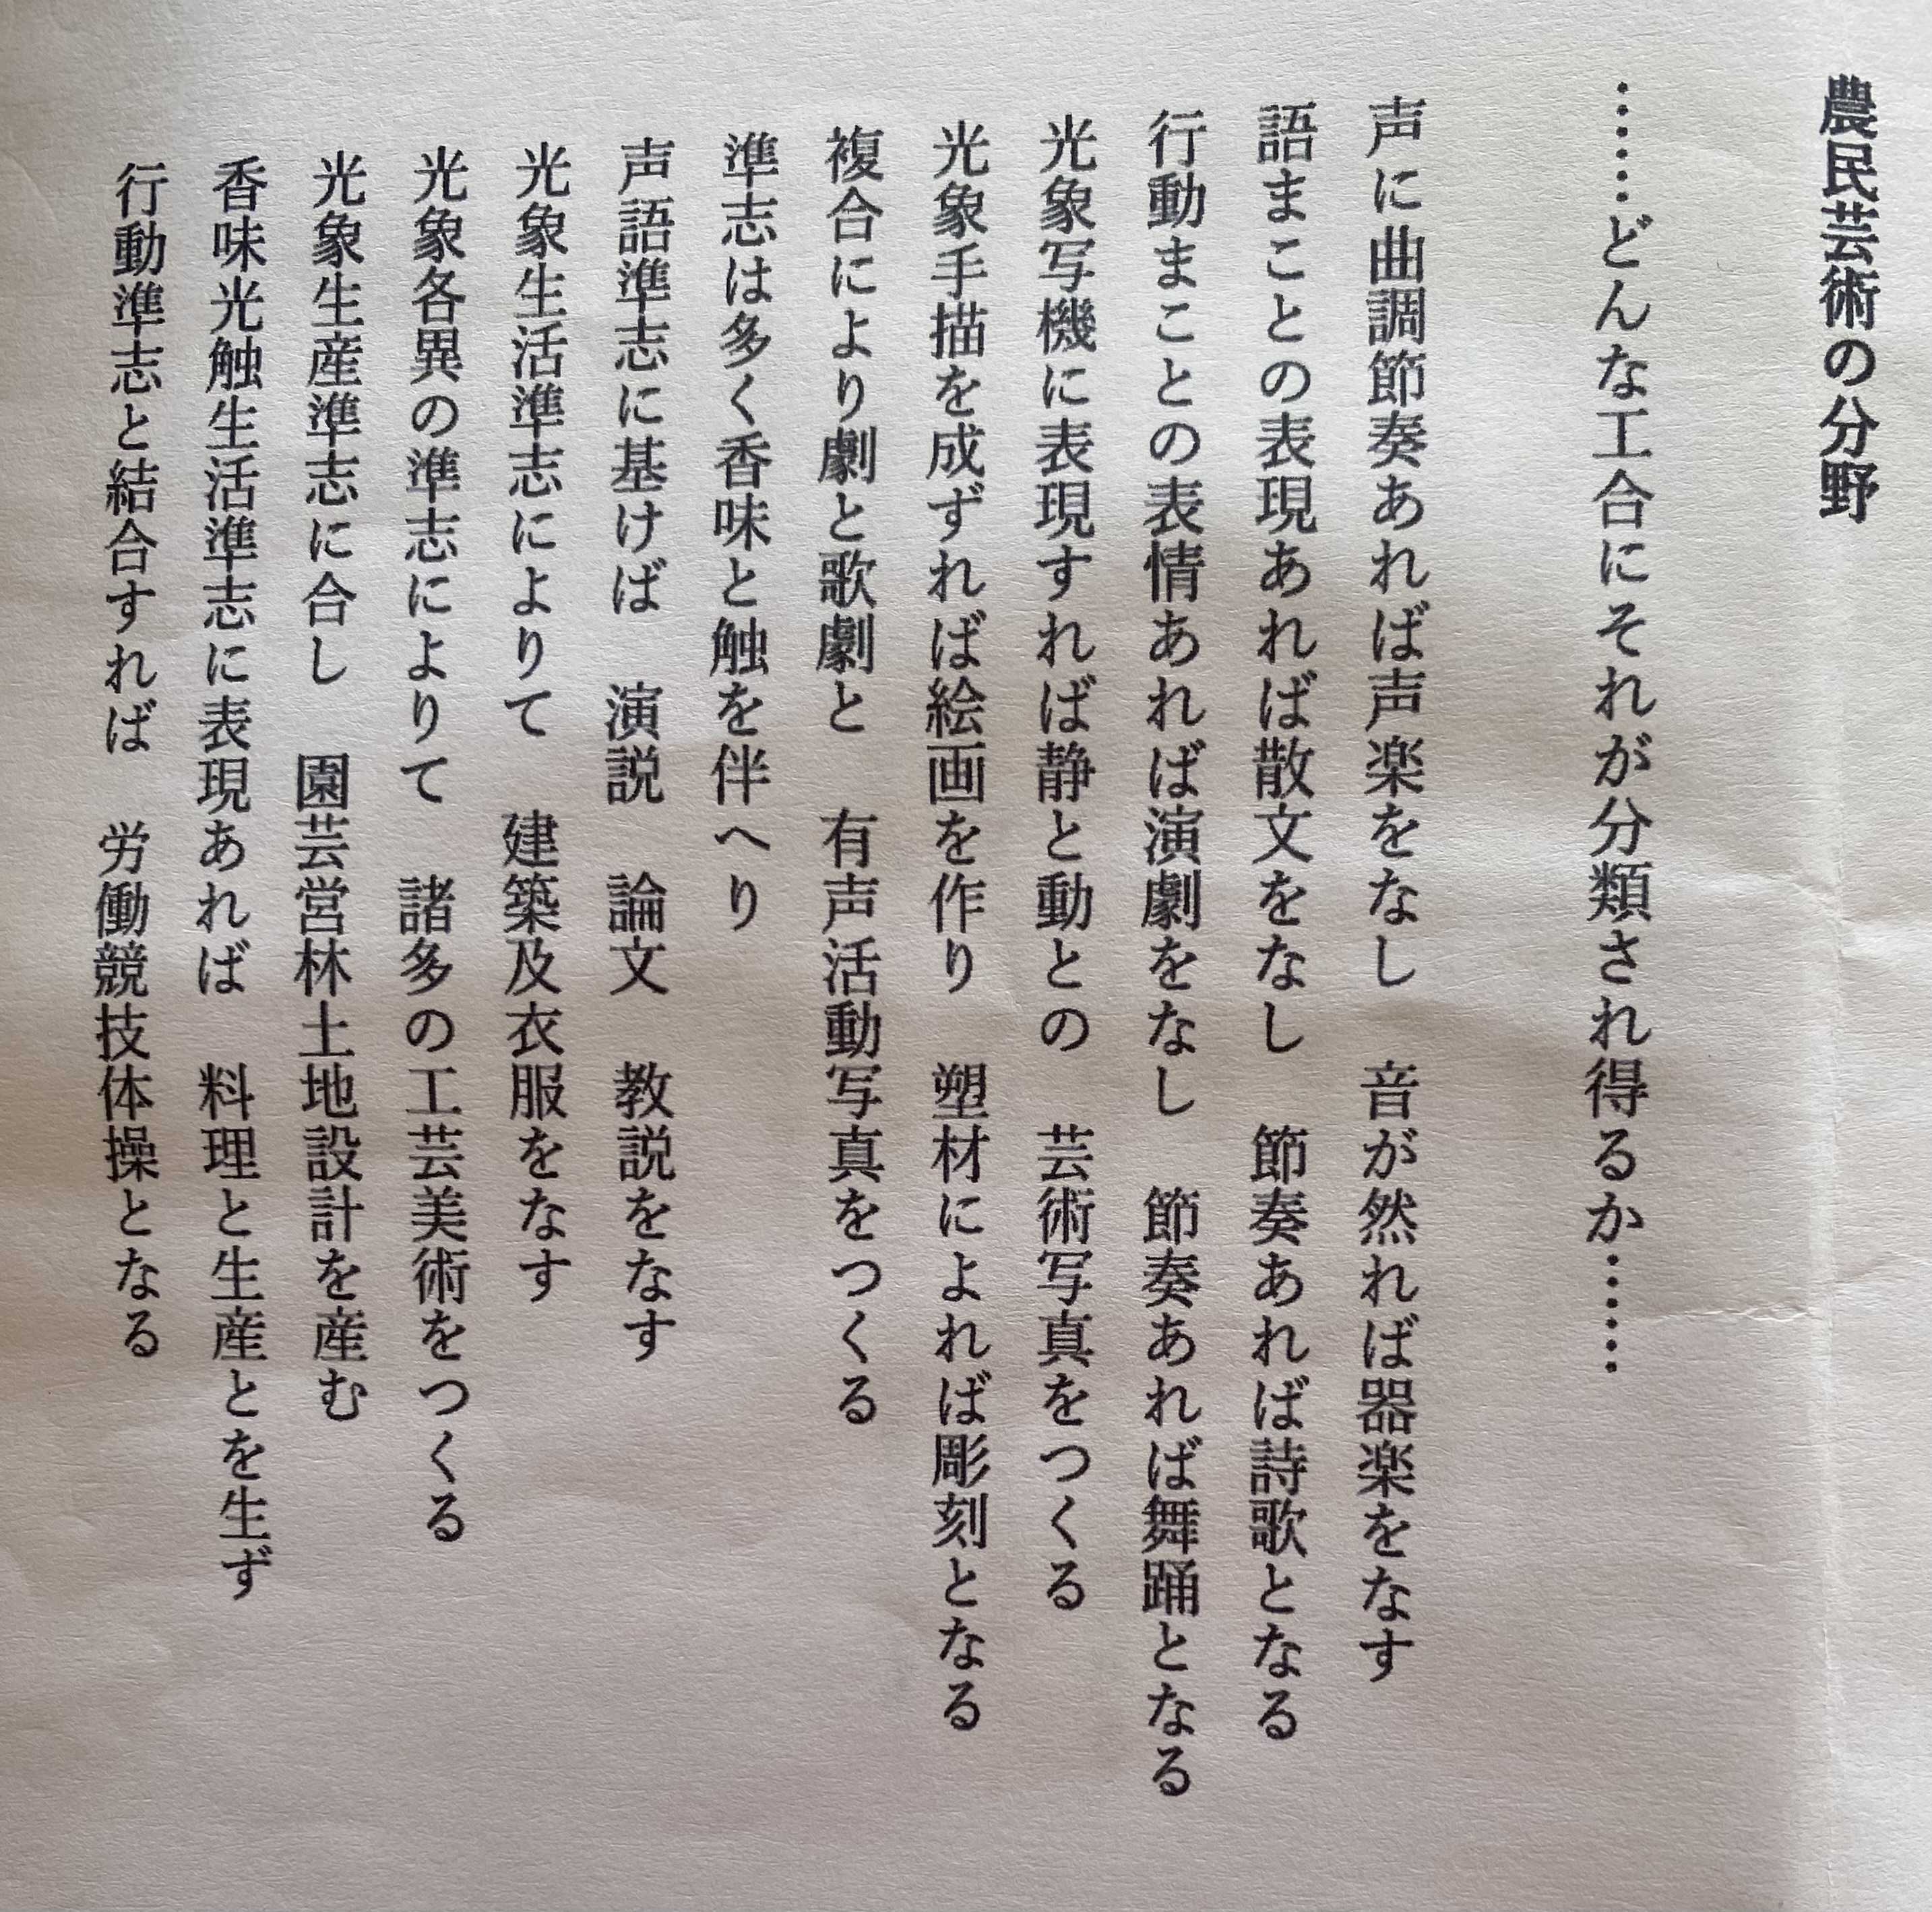 農民芸術の分野
……どんな工合にそれが分類され得るか……
声に曲調節奏あれば声楽をなし　音が然れば器楽をなす
語まことの表現あれば散文をなし　節奏あれば詩歌となる
行動まことの表情あれば演劇をなし　節奏あれば舞踊となる
光象写機に表現すれば静と動との　芸術写真をつくる
光象手描を成ずれば絵画を作り　塑材によれば彫刻となる
複合により劇と歌劇と　有声活動写真をつくる
準志は多く香味と触を伴へり
声語準志に基けば　演説　論文　教説をなす
光象生活準志によりて　建築及衣服をなす
光象各異の準志によりて　諸多の工芸美術をつくる
光象生産準志に合し　園芸営林土地設計を産む
香味光触生活準志に表現あれば　料理と生産とを生ず
行動準志と結合すれば　労働競技体操となる